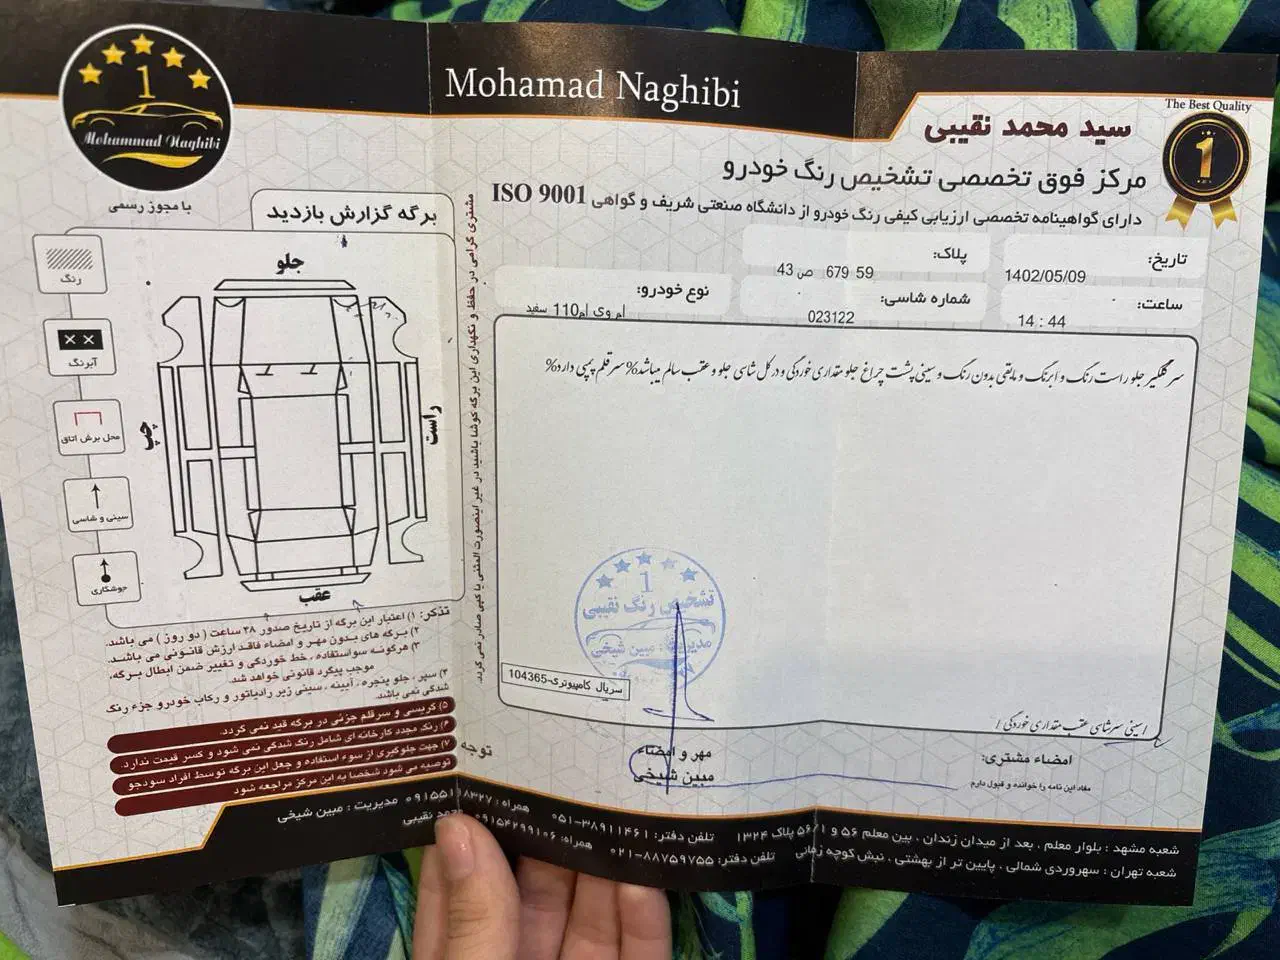 Mohamad Naghibi
1
Mohammad Naghibi
با مجوز رسمی
The Best Quality
1
سید محمد نقیبی
مرکز فوق تخصصی تشخیص رنگ خودرو
دارای گواهینامه تخصصی ارزیابی کیفی رنگ خودرو از دانشگاه صنعتی شریف و گواهی ISO 9001
تاریخ:
1402/05/09
پلاک:
59 679 ص 43
ساعت:
14 : 44
شماره شاسی:
023122
نوع خودرو:
ام وی ام110 سفید
سرگلگیر جلو راست رنگ و ابرنگ و مابقی بدون رنگ و سینی پشت چراغ جلو مقداری خوردگی و درکل شاسی جلو و عقب سالم میباشد% سر قلم پمپی دارد%
تشخیص رنگ نقیبی
1
مدیریت : مبین شیخی
سریال کامپیوتری-104365
سینی سرشاسی عقب مقداری خوردگی
مهر و امضاء
مبین شیخی
امضاء مشتری:
مفاد این نامه را خوانده و قبول دارم
برگه گزارش بازدید
جلو
چپ
راست
عقب
رنگ
آبرنگ
محل برش اتاق
سینی و شاسی
جوشکاری
مشتری گرامی در حفظ و نگهداری این برگه کوشا باشید در غیر اینصورت المثنی یا کپی صادر نمی گردد.
تذکر: ۱) اعتبار این برگه از تاریخ صدور ۴۸ ساعت ( دو روز ) می باشد.
۲) برگه های بدون مهر و امضاء فاقد ارزش قانونی می باشد.
۳) هرگونه سواستفاده ، خط خوردگی و تغییر ضمن ابطال برگه،
موجب پیگرد قانونی خواهد شد.
۴) سپر ، جلو پنجره ، آیینه ، سینی زیر رادیاتور و رکاب خودرو جزء رنگ
شدگی نمی باشد.
توجه
۵) کرپسی و سرقلم جزئی در برگه قید نمی گردد.
۶) رنگ مجدد کارخانه ای شامل رنگ شدگی نمی شود و کسر قیمت ندارد.
۷) جهت جلوگیری از سوء استفاده و جعل این برگه توسط افراد سودجو
توصیه می شود شخصا به این مرکز مراجعه شود
شعبه مشهد : بلوار معلم ، بعد از میدان زندان ، بین معلم ۵۶ و ۵۶/۱ پلاک ۱۳۲۴ تلفن دفتر: ۳۸۹۱۱۴۶۱-۰۵۱ همراه : ۰۹۱۵۵۱۱۸۳۲۷ مدیریت : مبین شیخی
شعبه تهران : سهروردی شمالی ، پایین تر از بهشتی ، نبش کوچه زمانی تلفن دفتر: ۸۸۷۵۹۷۵۵-۰۲۱ همراه: ۰۹۱۵۴۲۹۹۱۰۶ نقیبی